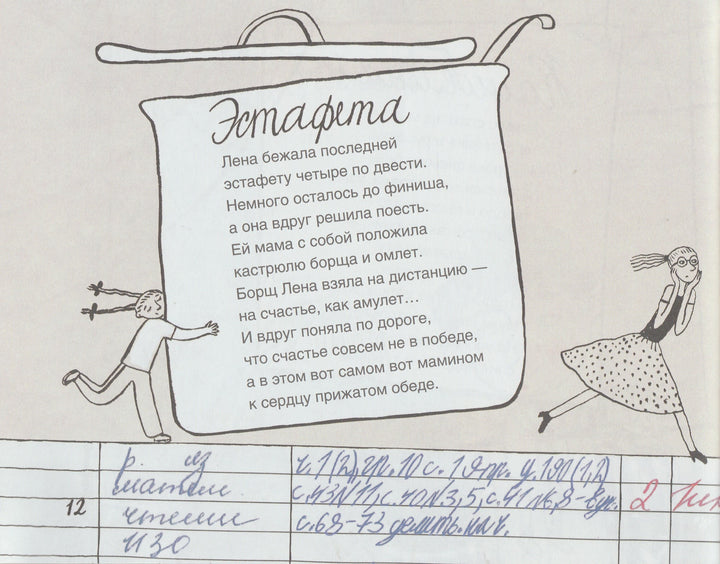 Эстафета
Лена бежала последней
эстафету четыре по двести.
Немного осталось до финиша,
а она вдруг решила поесть.
Ей мама с собой положила
кастрюлю борща и омлет.
Борщ Лена взяла на дистанцию —
на счастье, как амулет...
И вдруг поняла по дороге,
что счастье совсем не в победе,
а в этом вот самом вот мамином
к сердцу прижатом обеде.
р. яз ч.1(2), гл.10 с. у.190(1,2)
матем. с.43№11, с.40№3,5, с.41№6,8- 2
12
чтение с.68-73 делить.на ч.
ИЗО